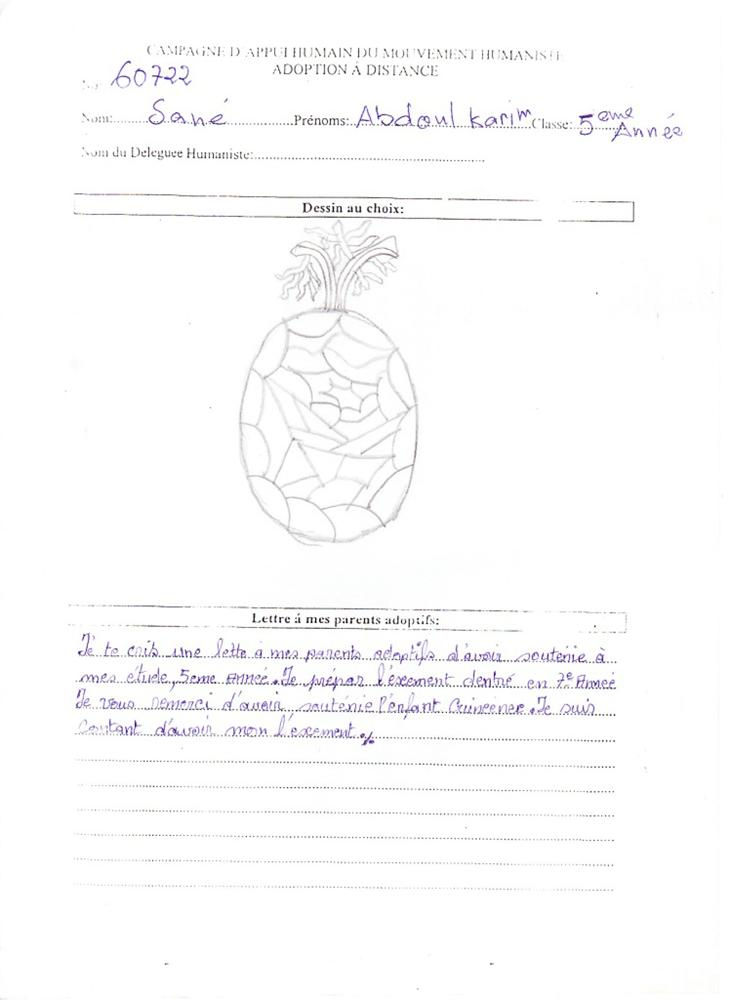 CAMPAGNE D'APPUI HUMAIN DU MOUVEMENT HUMANISTE
ADOPTION Á DISTANCE
No: 60722
Nom:........Sané...............Prénoms:..Abdoul karim Classe: 5eme Année
Nom du Deleguee Humaniste:.......................................................
Dessin au choix:
Lettre á mes parents adoptifs:
Je te cris une lette à mes parents adoptifs d'avoir soutenie à
mes étude, 5eme Année. Je prépar l'exement dentré en 7e Année
Je vous remerci d'avoir soutenie l'enfant Guineener. Je suis
Contant d'avoir mon l'exement.